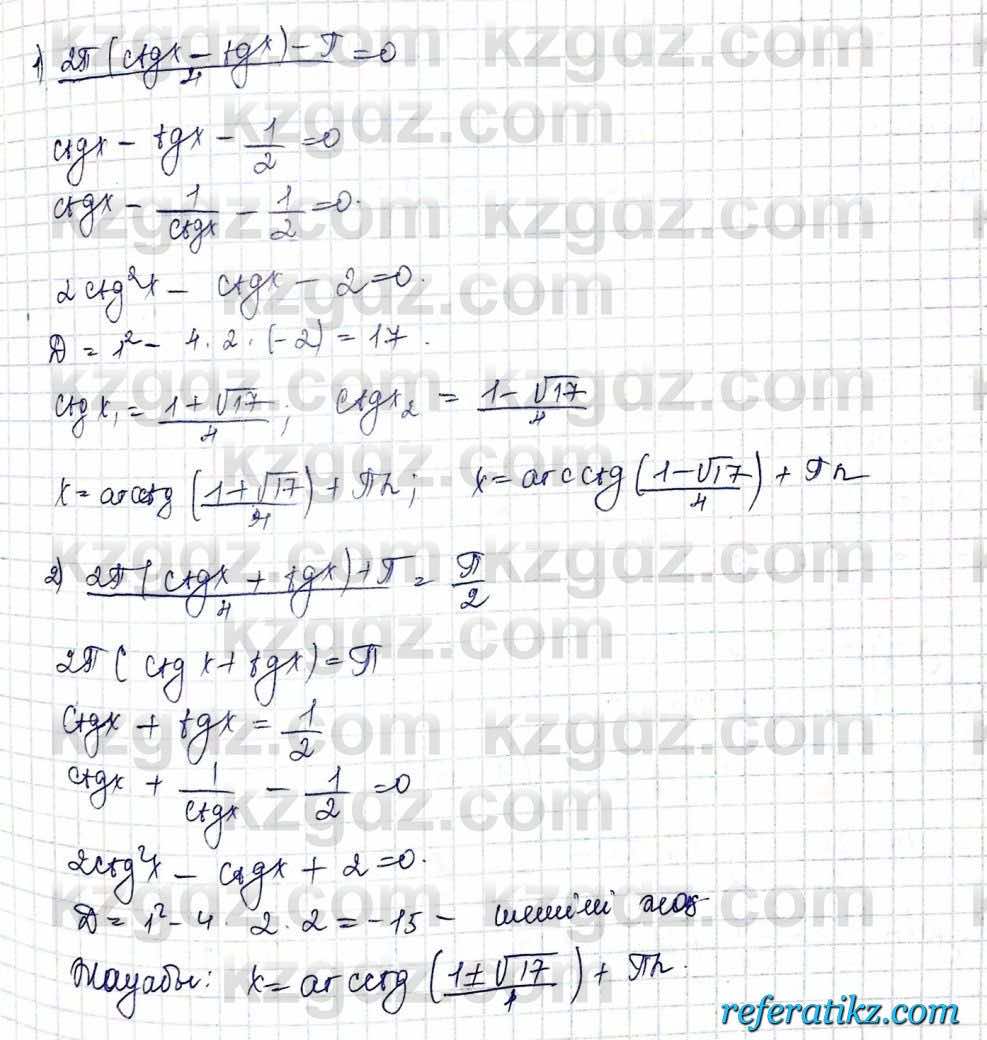 1) (2π(ctgx - tgx) - π)/4 = 0
ctgx - tgx - 1/2 = 0
ctgx - 1/ctgx - 1/2 = 0.
2ctg²x - ctgx - 2 = 0.
D = 1² - 4·2·(-2) = 17.
ctgx₁ = (1+√17)/4; ctgx₂ = (1-√17)/4
x = arcctg((1+√17)/4) + πn; x = arcctg((1-√17)/4) + πn
2) (2π(ctgx + tgx) + π)/4 = π/2
2π(ctgx + tgx) = π
ctgx + tgx = 1/2
ctgx + 1/ctgx - 1/2 = 0
2ctg²x - ctgx + 2 = 0.
D = 1² - 4·2·2 = -15 - шешімі жоқ
Жауабы: x = arcctg((1±√17)/4) + πn.
kzgdz.com
referatikz.com